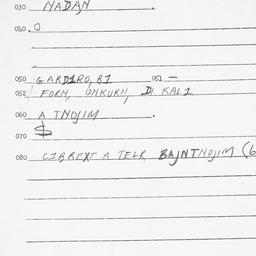 030 NADAN
040 . O
050 GARDIRO, BI 051 —
052 FORN, ONKURN, DI KALI
060 A TNOJIM .
070 $
080 CIBREXT A TELR BAJNTNOJIM (6